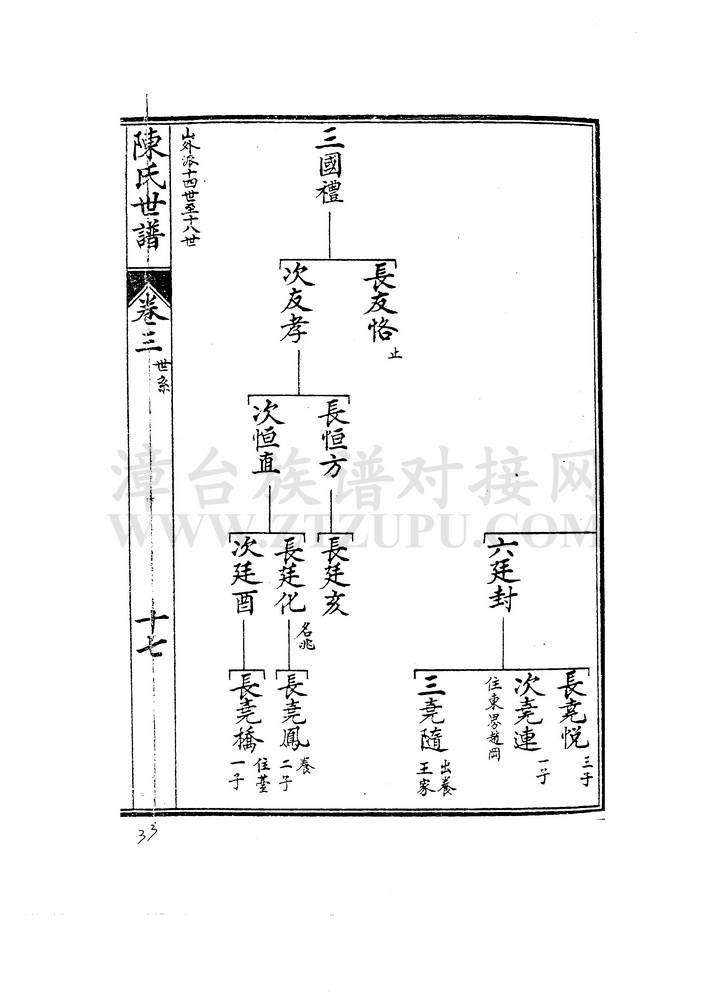 三國禮
長友恪
止
次友孝
長恒方
次恒直
六廷封
長廷亥
長廷化
名兆
次廷酉
長堯悅
三子
次堯連
一子
住東畧趙岡
三堯隨
出養
王家
長堯鳳
養
二子
住臺
長堯橋
一子
山外派十四世至十八世
陳氏世譜
卷三
世系
十七
33
漳台族谱对接网
WWW.ZTZUPU.COM